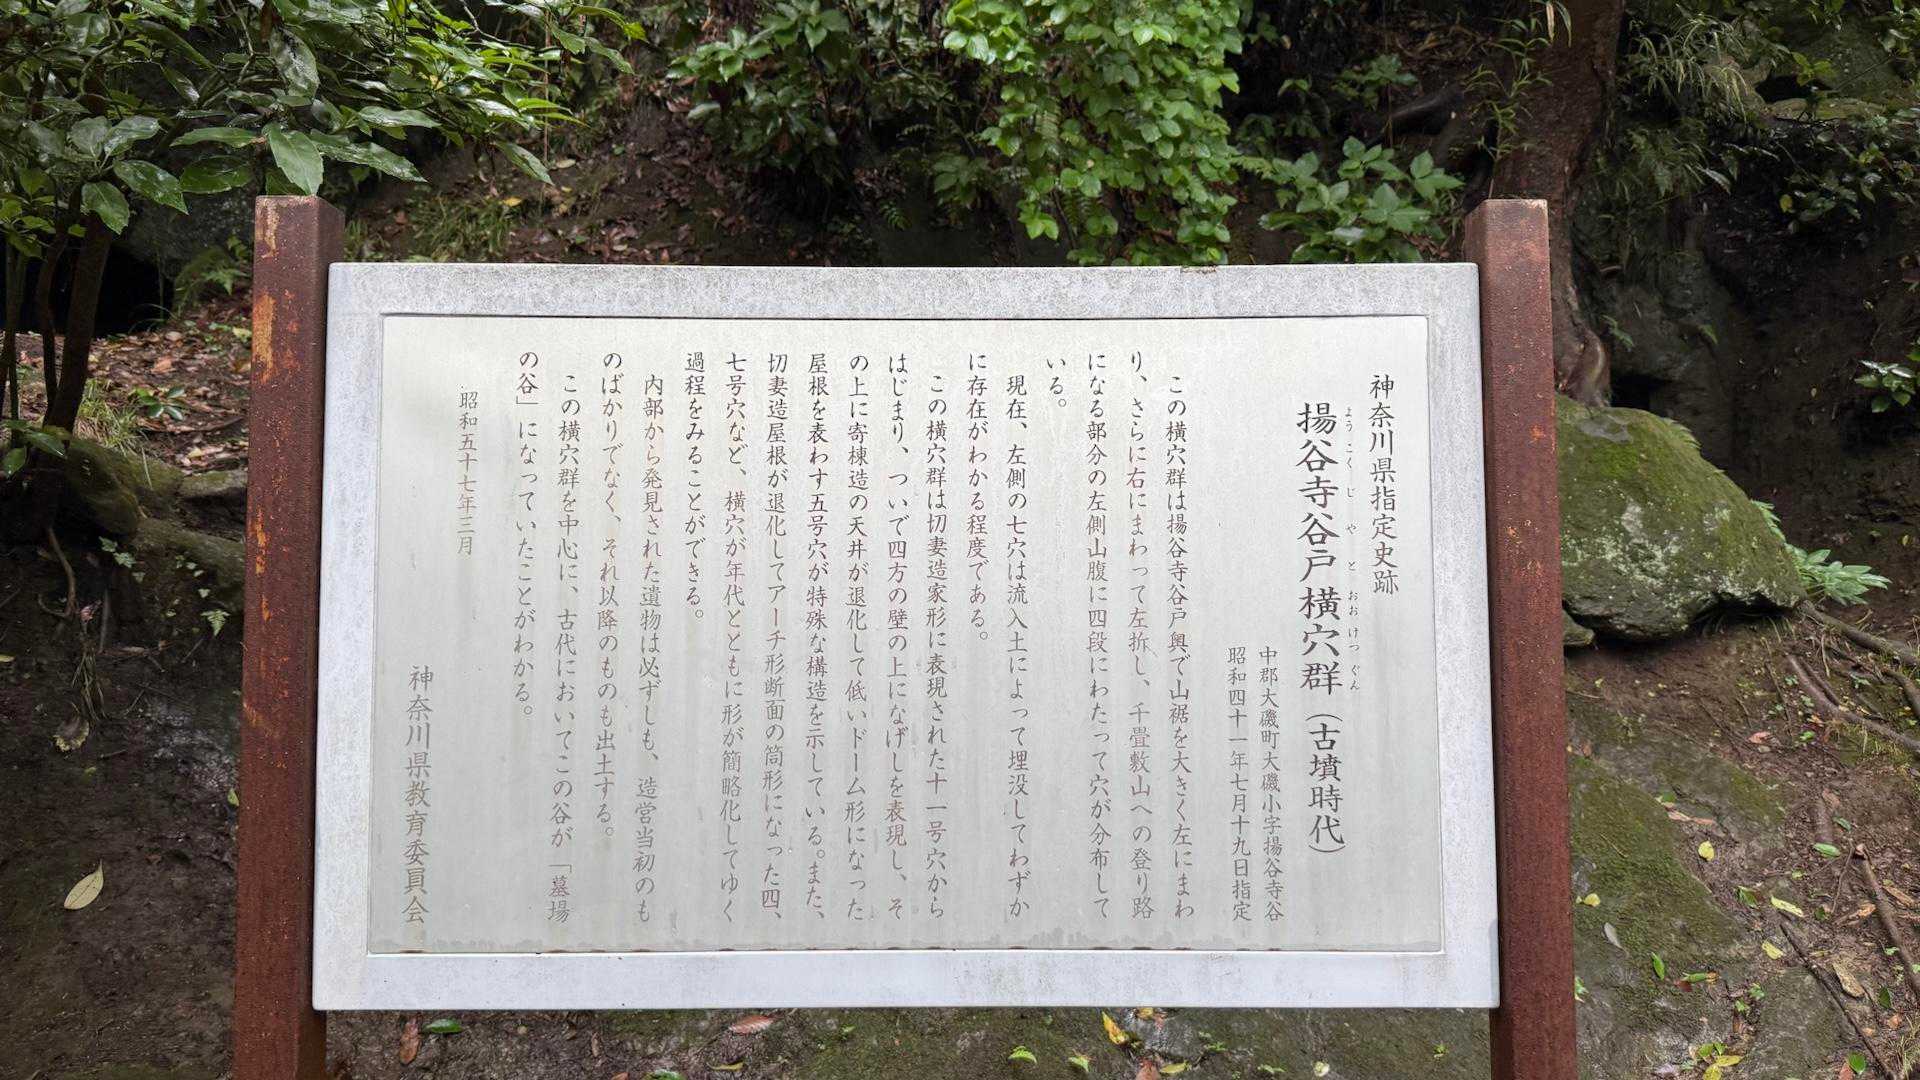 神奈川県指定史跡
ようこくじやとおおけつぐん
揚谷寺谷戸横穴群（古墳時代）
中郡大磯町大磯小字揚谷寺谷
昭和四十一年七月十九日指定
この横穴群は揚谷寺谷戸奥で山裾を大きく左にまわ
り、さらに右にまわって左折し、千畳敷山への登り路
になる部分の左側山腹に四段にわたって穴が分布して
いる。
現在、左側の七穴は流入土によって埋没してわずか
に存在がわかる程度である。
この横穴群は切妻造家形に表現された十一号穴から
はじまり、ついで四方の壁の上になげしを表現し、そ
の上に寄棟造の天井が退化して低いドーム形になった
屋根を表わす五号穴が特殊な構造を示している。また、
切妻造屋根が退化してアーチ形断面の筒形になった四、
七号穴など、横穴が年代とともに形が簡略化してゆく
過程をみることができる。
内部から発見された遺物は必ずしも、造営当初のも
のばかりでなく、それ以降のものも出土する。
この横穴群を中心に、古代においてこの谷が「墓場
の谷」になっていたことがわかる。
昭和五十七年三月
神奈川県教育委員会